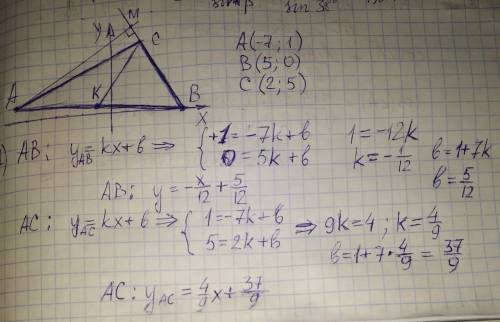 M
y
C
A
K
B
x
A(-7; 1)
B(5; 0)
C(2; 5)
AB: y_AB = kx+b ⇒ { +1 = -7k+b
0 = 5k+b
1 = -12k
k = -1/12
b = 1+7k
b = 5/12
AB: y = -x/12 + 5/12
AC: y_AC = kx+b ⇒ { 1 = -7k+b
5 = 2k+b
⇒ 9k = 4; k = 4/9
b = 1+7·4/9 = 37/9
AC: y_AC = 4/9x + 37/9